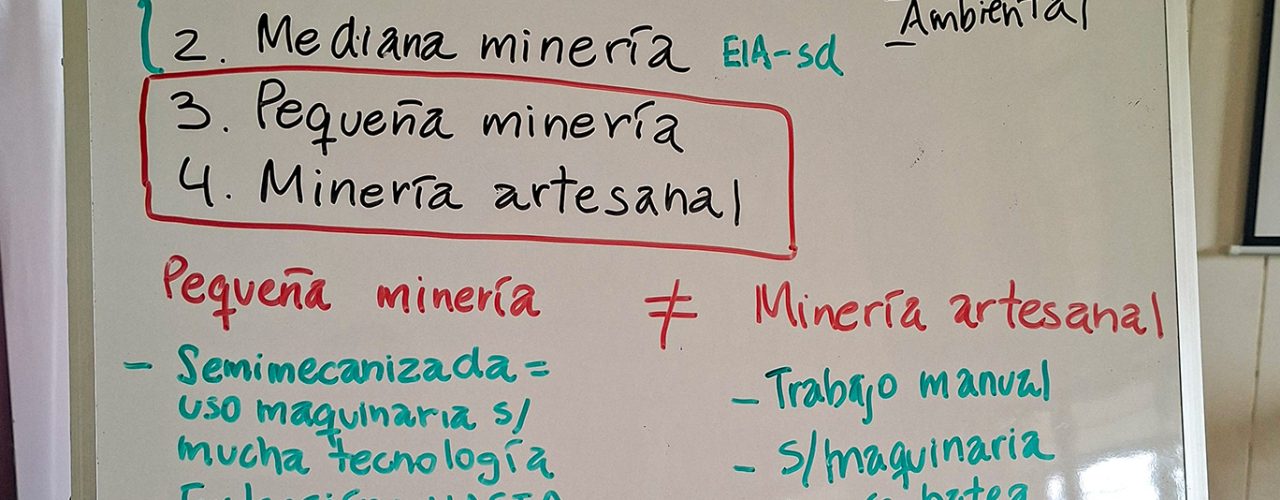 _Ambiental
2. Mediana minería EIA-sd
3. Pequeña minería
4. Minería artesanal
Pequeña minería ≠ Minería artesanal
- Semimecanizada =
uso maquinaria s/
mucha tecnología
- Trabajo manual
- s/maquinaria
batea